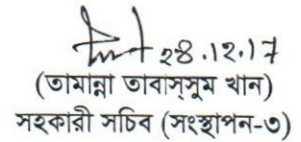 ২৪.১২.১৭
(তামান্না তাবাসসুম খান)
সহকারী সচিব (সংস্থাপন-৩)